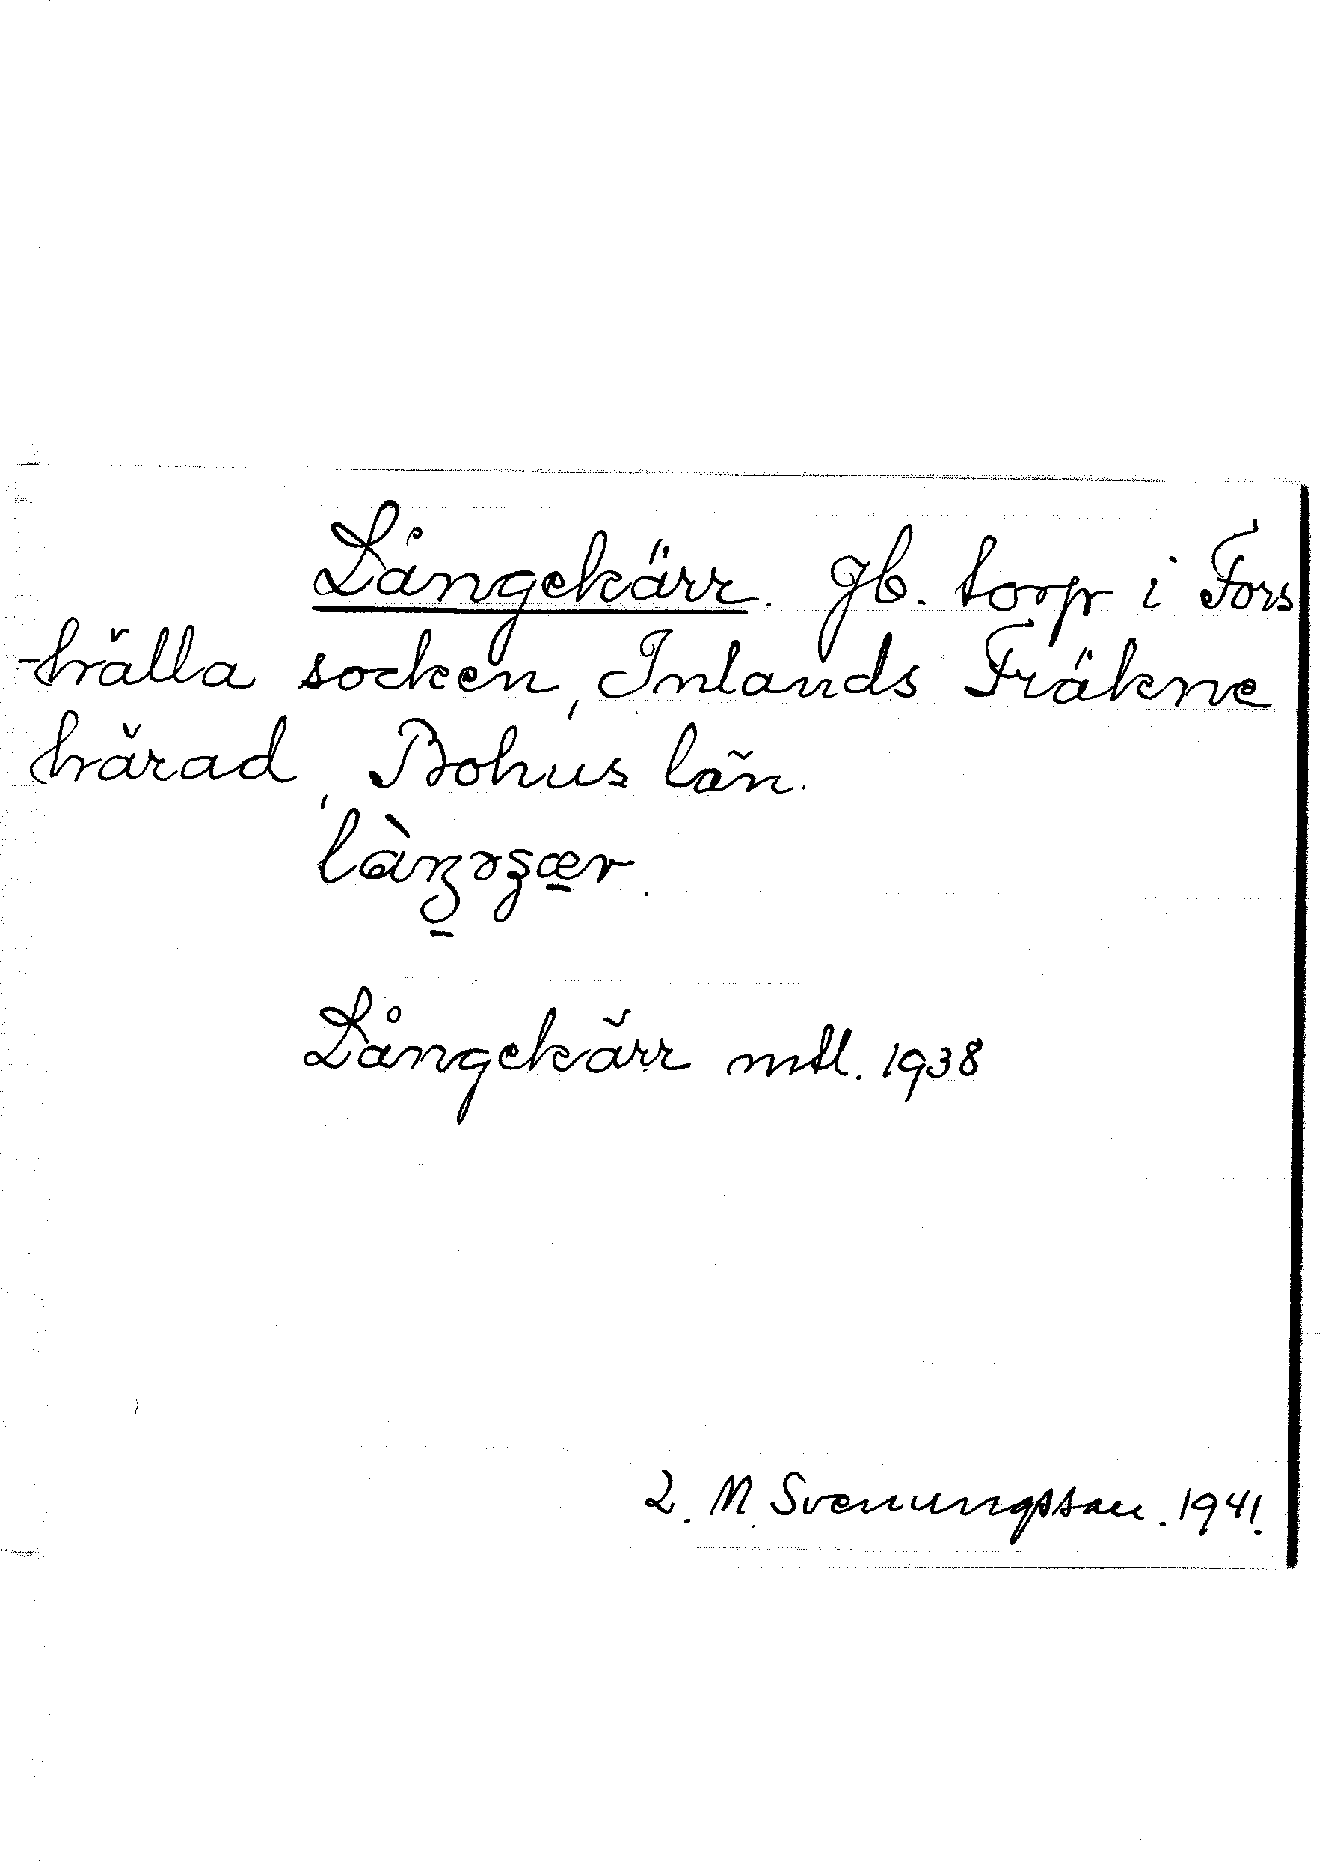 Långekärr. Jb. torp i Fors
hälla socken, Inlands Fräkne
härad, Bohus län.
Långekärr mtl. 1938
L. M. Svenungsson. 1941.